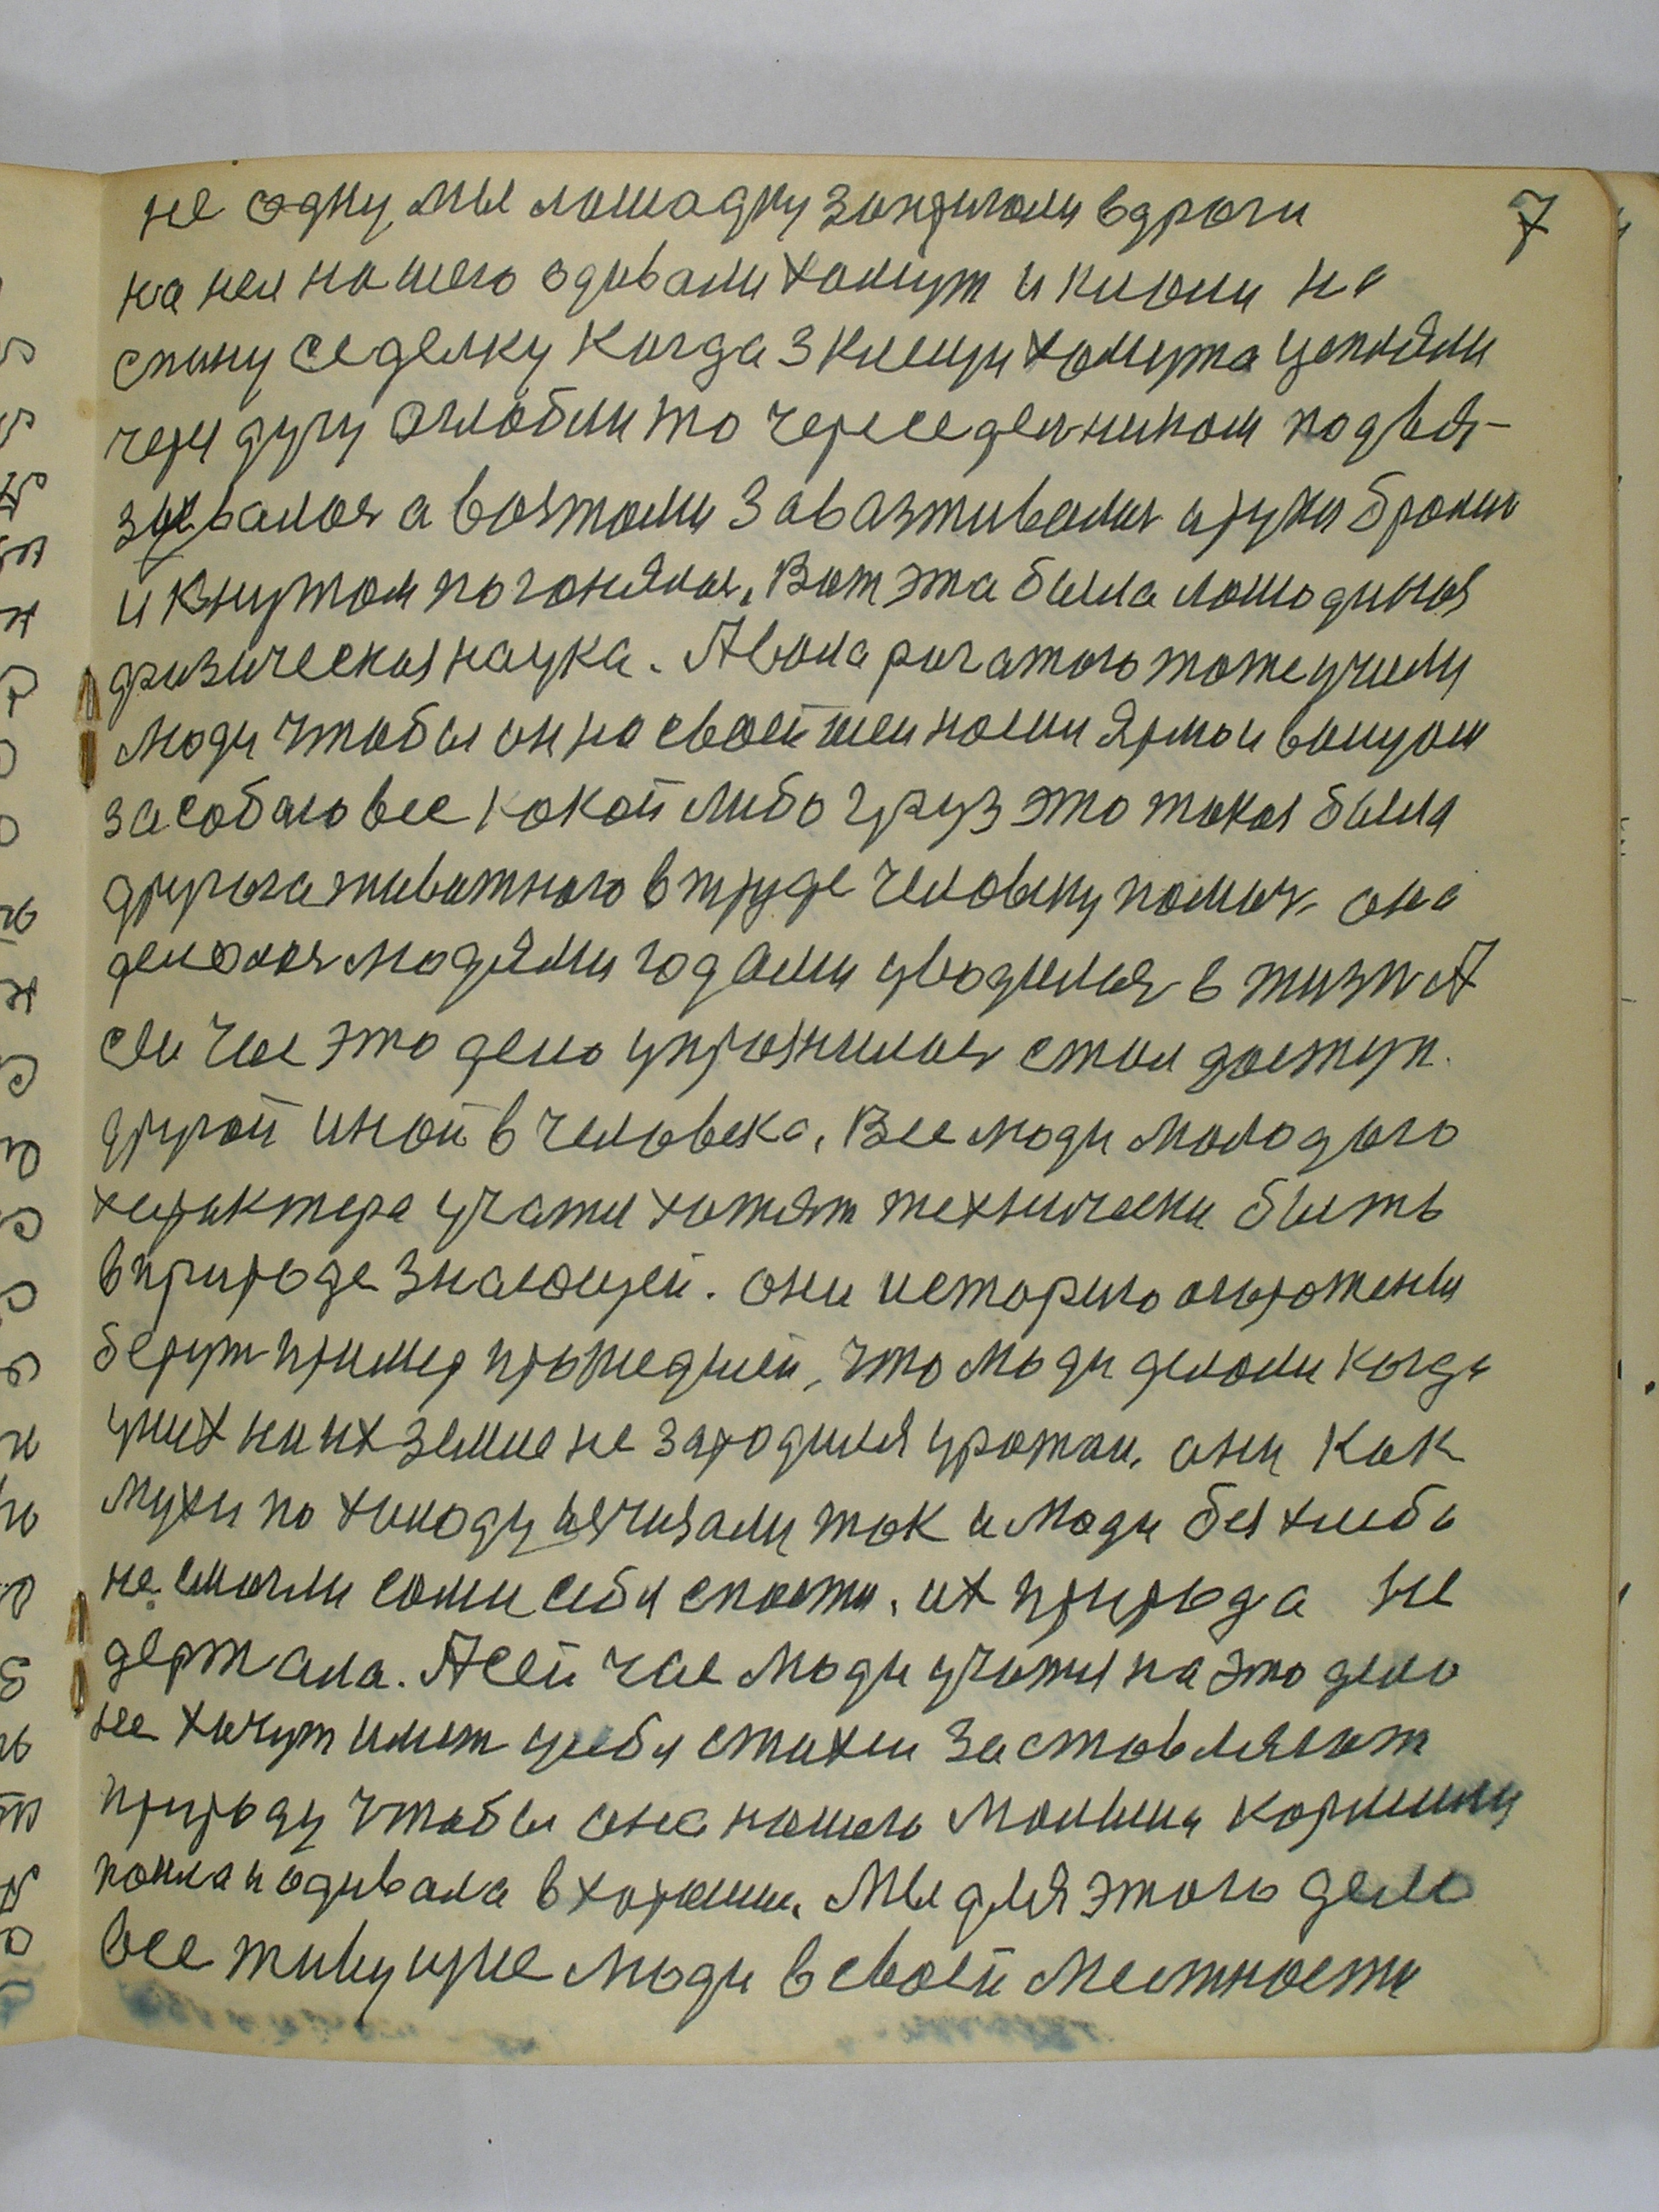 7
не одну мы лошадку запригали в дроги
на нея нашего одивали хомут и клюши на
спину седелку когда з клещи хомута цепляли
чери дугу оглобли то череседельником подвя-
зывалося а вожтоми завазживалися а руки брали
и кнутом погонялы. Вот эта была лошадиная
физическая наука. А вола рогатого тоже учили
люди чтобы он на своей шеи носил Ярмо и волушом
за собаю все кокой либо груз это токоя была
другога животного в труде человеку помич она
делолося людями годами уводилися в жизн А
сейчас это дело упрознилося стал доступ
другой иной в человека. Все люди молодого
характера учатся хотят технически быть
в природе знающей. они историю огорожения
берут пример прошедшей, что люди делали когда
у них на их земле не зародился урожай. они как
мухи по холоду изчизали ток и люди без хлеба
не смогли сами себя спасти. их природа не
держала. А сейчас люди учотся на это дело
не хочут имет у себя стихии застовляют
природу чтобы она нашего Малыша кормила
поила и одивала в хорошии. Мы для этого дело
все живущие люди в своей местности